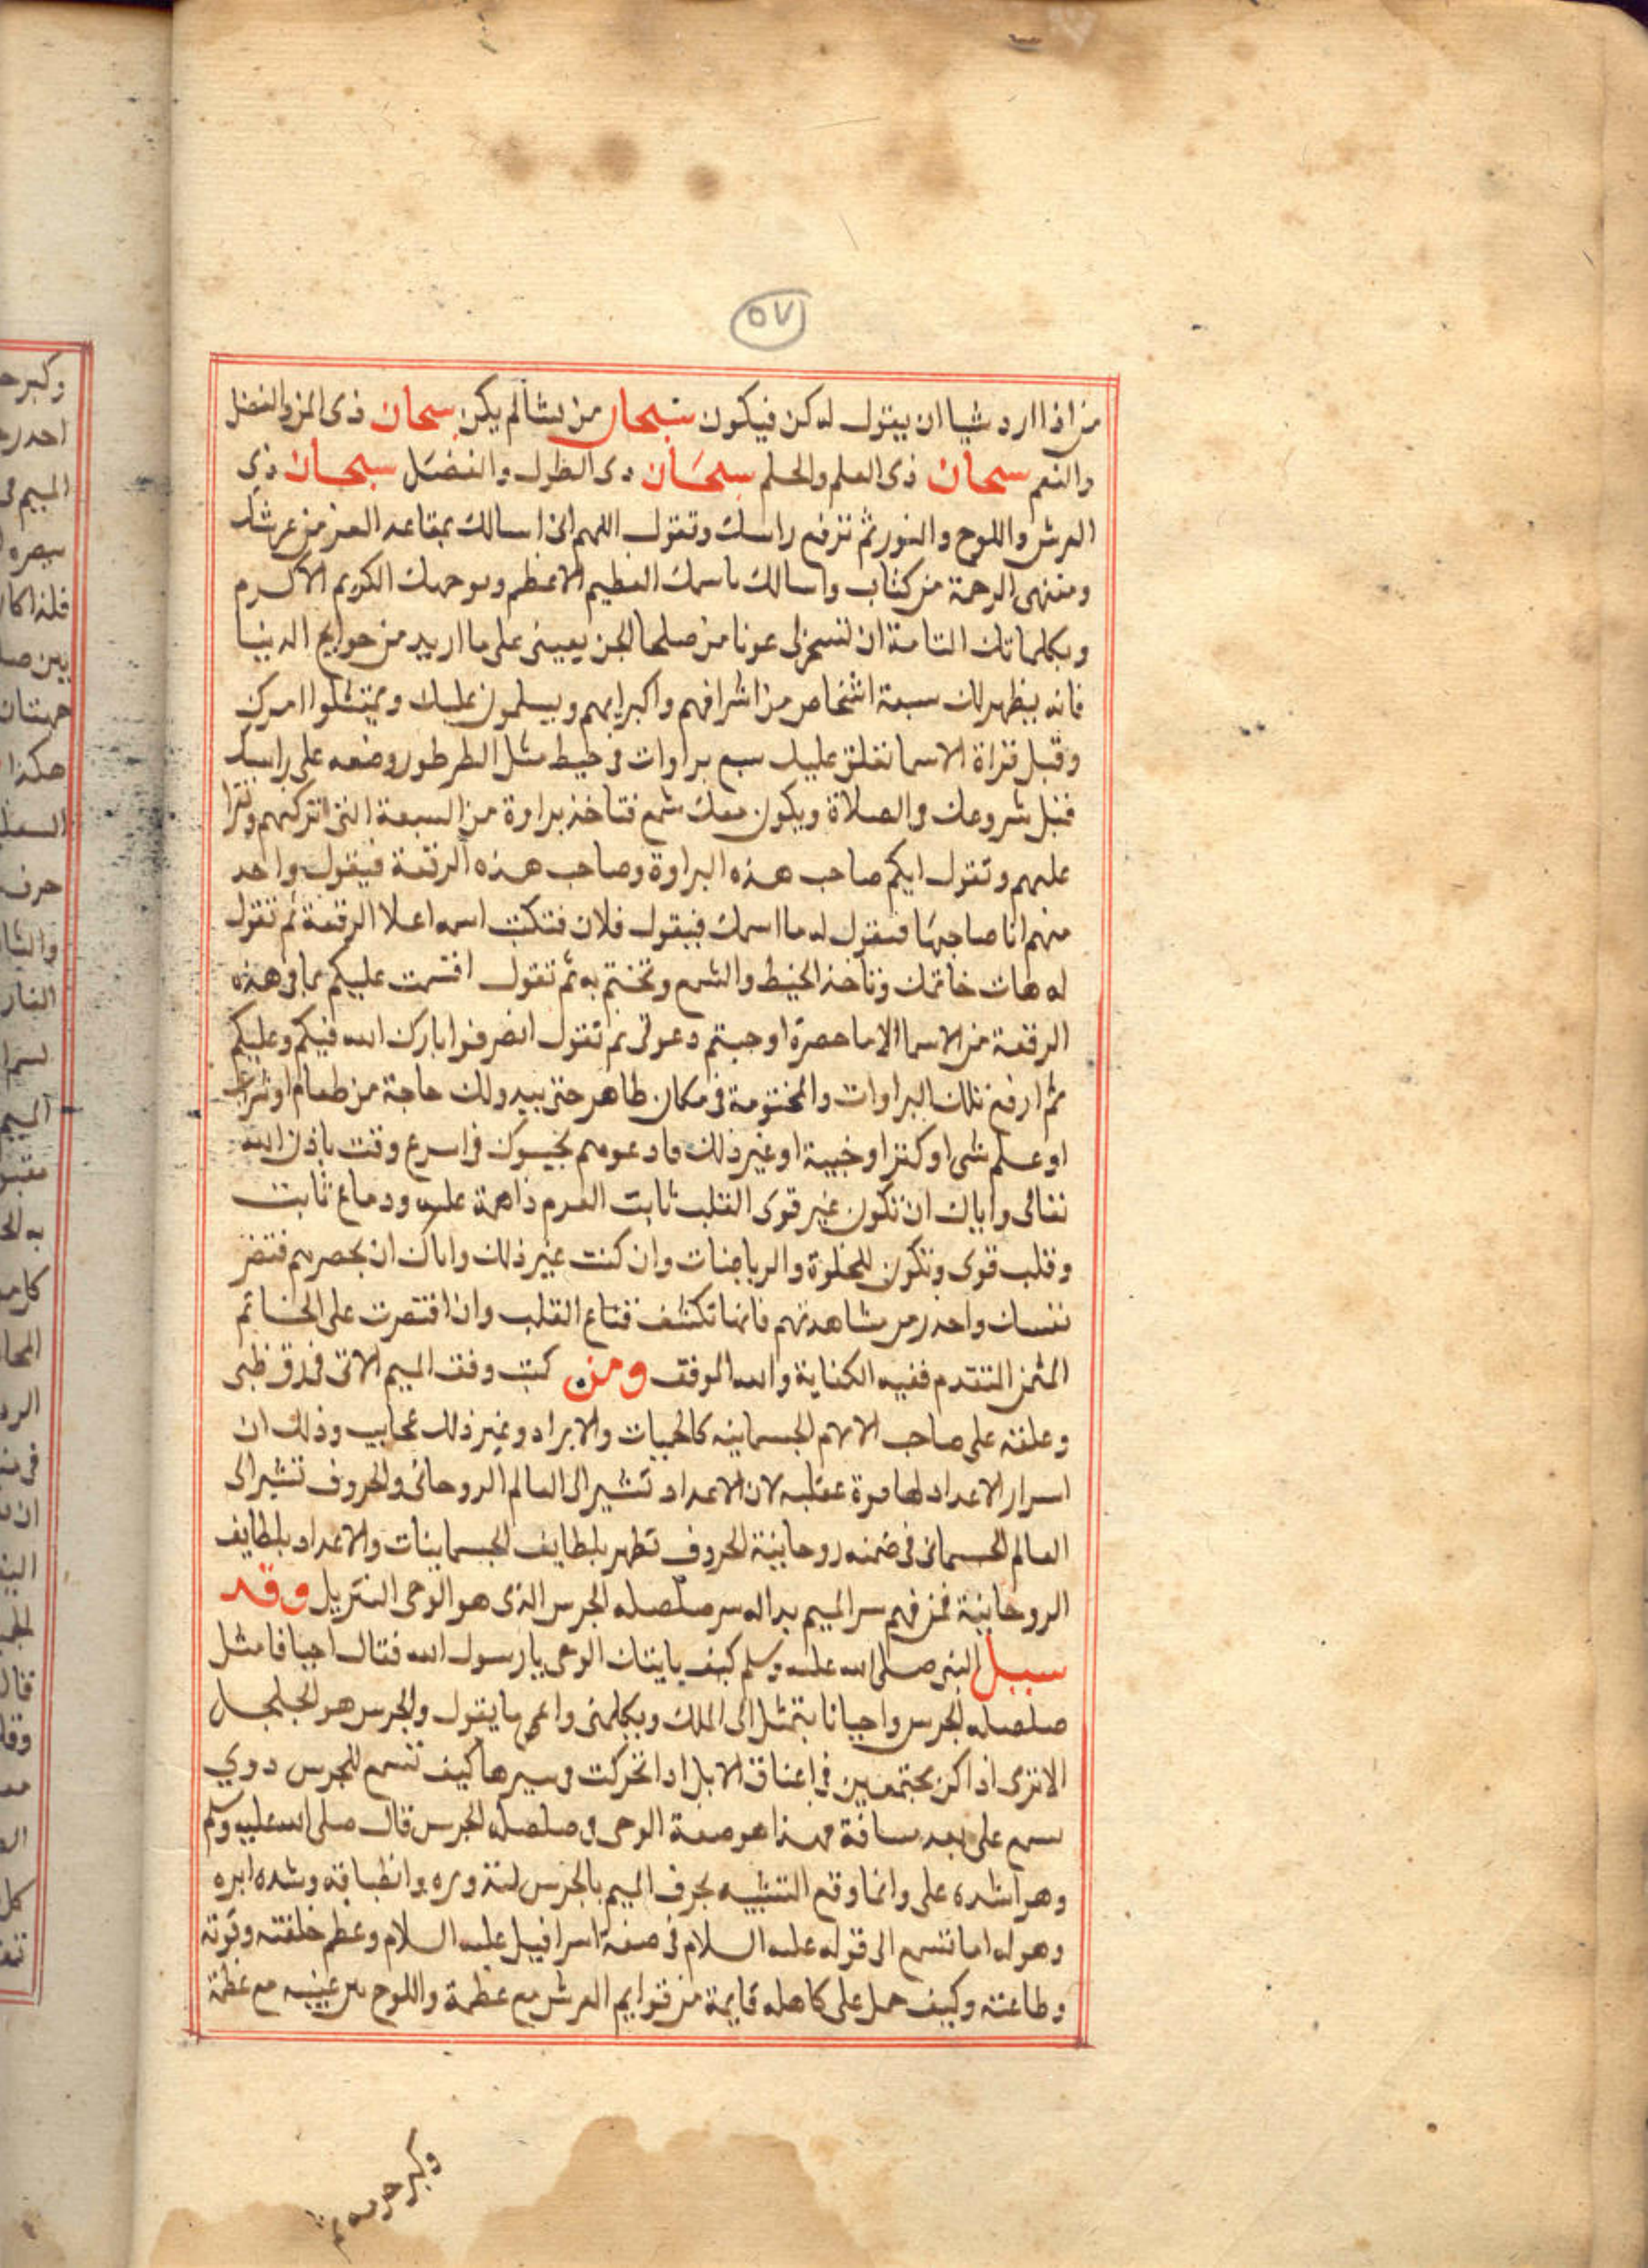 ٥٧
من اذا اراد شيا ان يقول له كن فيكون سبحان من يشا لم يكن سبحان ذى المن والفضل
والنعم سبحان ذى العلم والحلم سبحان ذى الطول والفضل سبحان ذي
العرش واللوح والنور ثم ترفع راسك وتقول اللهم انى اسالك بمقاعد العز من عرشك
ومنتهى الرحمة من كتابك واسالك باسمك العظيم الاعظم وبوجهك الكريم الاكرم
وبكلماتك التامة ان تسخر لى عونا من صلحا الجن يعيننى على ما اريد من حوايج الدنيا
فانه يظهر لك سبعة اشخاص من اشرافهم واكبرايهم ويسلمون عليك ويمتثلوا امرك
وقبل قراة الاسما تعلق عليك سبع براوات فى خيط مثل الطرطور وضعه على راسك
قبل شروعك فى الصلاة ويكون معك شمع فتاخذ براوة من السبعة التى تتركهم وتقرا
عليهم وتقول ايكم صاحب هذه البراوة وصاحب هذه الرقعة فيقول واحد
منهم انا صاحبها فتقول له ما اسمك فيقول فلان فتكتب اسمه اعلا الرقعة ثم تقول
له هات خاتمك وتاخذ الخيط والشمع وتختم به ثم تقول اقسمت عليكم بما فى هذه
الرقعة من الاسما الا ما حضرتم اوجبتم دعوتى ثم تقول انصرفوا بارك الله فيكم وعليكم
ثم ارفع تلك البراوات والمختومة فى مكان طاهر حتى يبدو لك حاجة من طعام او شراب
او علم شى او كنز او خبية او غير ذلك فادعوهم يجيبوك فى اسرع وقت باذن الله
تعالى واياك ان تكون غير قوى القلب ثابت العزم ذا همة عليه ودماغ ثابت
وقلب قوى وتكون للخلوة والرياضات وان كنت غير ذلك واياك ان تحضرهم فتضر
نفسك واحذر من مشاهدتهم فانها تكشف قناع القلب وان اقتصرت على الخاتم
المثمن المتقدم ففيه الكفاية والله الموفق ومن كتب وفق الميم الاتى فى رق ظبى
وعلقه على صاحب الالام الجسمانيه كالحميات والابراد وغير ذلك عجايب وذلك ان
اسرار الاعداد لها قوة عقليه لان الاعداد تشير الى العالم الروحانى والحروف تشير الى
العالم الجسمانى فى ضمنه روحانية الحروف تظهر بلطايف الجسمانيات والاعداد بلطايف
الروحانية فمن فهم سر الميم بداله سر صلصله الجرس الذى هو الوحى التنزيل وقد
سيل النبى صلى الله عليه وسلم كيف ياتيك الوحى يا رسول الله فقال احيانا مثل
صلصله الجرس واحيانا يتمثل الى الملك ويكلمنى واعى ما يقول والجرس هو الجلجل
الا ترى اذا كن مجتمعين فى اعناق الابل اذا تحركت فى سيرها كيف تسمع للجرس دوي
يسمع على بعد مسافة فهذا هو صفة الوحى فى صلصله الجرس قال صلى الله عليه وسلم
وهو اشده على وانما وقع التشبيه بحرف الميم بالجرس لتدويره وانطباقه وشده
وهوله اما تسمع الى قوله عليه السلام فى صفة اسرافيل عليه السلام وعظم خلقته وقوته
وطاعته وكيف حمل على كاهله قايمة من قوايم العرش مع عظمة واللوح بين عينيه مع عظمة